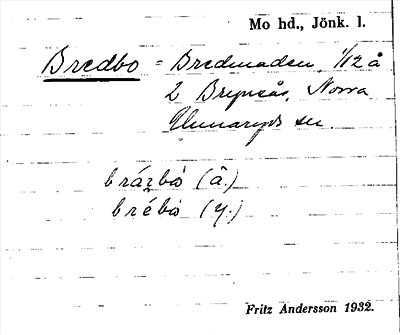 Mo hd., Jönk. l.
Bredbo = Bredmaden, 1/12 å
2 Brynsås, Norra
Unnaryds sn.
brázbo (ä.)
brébo (y.)
Fritz Andersson 1932.